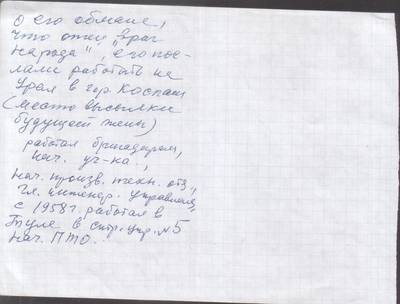 о его обмане,
что отец "враг
народа", его пос-
лали работать на
Урал в гор. Коспаш
(место высылки
будущей жены)
работал бригадиром,
нач. уч-ка.,
нач. произв. техн. отд.,
гл. инженер. управления,
с 1958 г. работал в
Туле в стр. упр. №5
нач. ПТО.